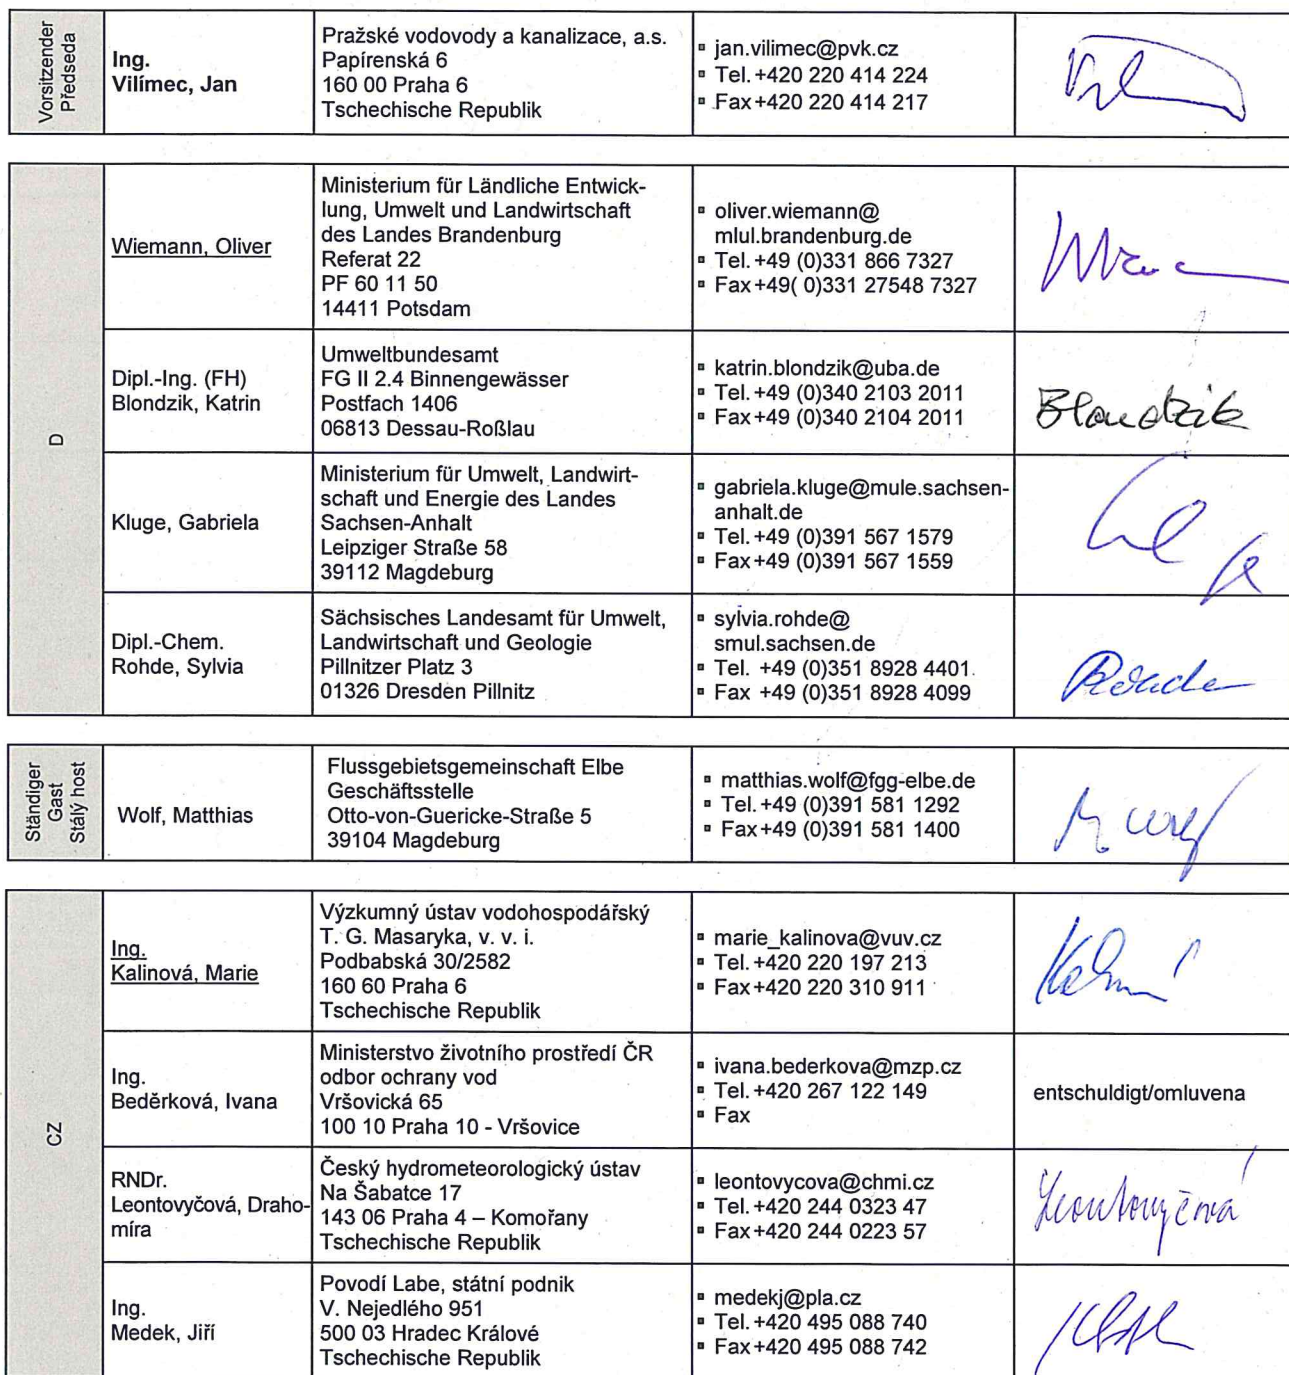 Vorsitzender
Předseda
Ing.
Vilímec, Jan
Pražské vodovody a kanalizace, a.s.
Papírenská 6
160 00 Praha 6
Tschechische Republik
▫ jan.vilimec@pvk.cz
▫ Tel. +420 220 414 224
▫ Fax +420 220 414 217
D
Wiemann, Oliver
Ministerium für Ländliche Entwick-
lung, Umwelt und Landwirtschaft
des Landes Brandenburg
Referat 22
PF 60 11 50
14411 Potsdam
▫ oliver.wiemann@
mlul.brandenburg.de
▫ Tel. +49 (0)331 866 7327
▫ Fax +49( 0)331 27548 7327
Dipl.-Ing. (FH)
Blondzik, Katrin
Umweltbundesamt
FG II 2.4 Binnengewässer
Postfach 1406
06813 Dessau-Roßlau
▫ katrin.blondzik@uba.de
▫ Tel. +49 (0)340 2103 2011
▫ Fax +49 (0)340 2104 2011
Blondzik
Kluge, Gabriela
Ministerium für Umwelt, Landwirt-
schaft und Energie des Landes
Sachsen-Anhalt
Leipziger Straße 58
39112 Magdeburg
▫ gabriela.kluge@mule.sachsen-
anhalt.de
▫ Tel. +49 (0)391 567 1579
▫ Fax +49 (0)391 567 1559
Dipl.-Chem.
Rohde, Sylvia
Sächsisches Landesamt für Umwelt,
Landwirtschaft und Geologie
Pillnitzer Platz 3
01326 Dresden Pillnitz
▫ sylvia.rohde@
smul.sachsen.de
▫ Tel. +49 (0)351 8928 4401
▫ Fax +49 (0)351 8928 4099
Ständiger
Gast
Stálý host
Wolf, Matthias
Flussgebietsgemeinschaft Elbe
Geschäftsstelle
Otto-von-Guericke-Straße 5
39104 Magdeburg
▫ matthias.wolf@fgg-elbe.de
▫ Tel. +49 (0)391 581 1292
▫ Fax +49 (0)391 581 1400
M. Wolf
CZ
Ing.
Kalinová, Marie
Výzkumný ústav vodohospodářský
T. G. Masaryka, v. v. i.
Podbabská 30/2582
160 60 Praha 6
Tschechische Republik
▫ marie_kalinova@vuv.cz
▫ Tel. +420 220 197 213
▫ Fax +420 220 310 911
Ing.
Beděrková, Ivana
Ministerstvo životního prostředí ČR
odbor ochrany vod
Vršovická 65
100 10 Praha 10 - Vršovice
▫ ivana.bederkova@mzp.cz
▫ Tel. +420 267 122 149
▫ Fax
entschuldigt/omluvena
RNDr.
Leontovyčová, Draho-
míra
Český hydrometeorologický ústav
Na Šabatce 17
143 06 Praha 4 – Komořany
Tschechische Republik
▫ leontovycova@chmi.cz
▫ Tel. +420 244 0323 47
▫ Fax +420 244 0223 57
Leontovyčová
Ing.
Medek, Jiří
Povodí Labe, státní podnik
V. Nejedlého 951
500 03 Hradec Králové
Tschechische Republik
▫ medekj@pla.cz
▫ Tel. +420 495 088 740
▫ Fax +420 495 088 742